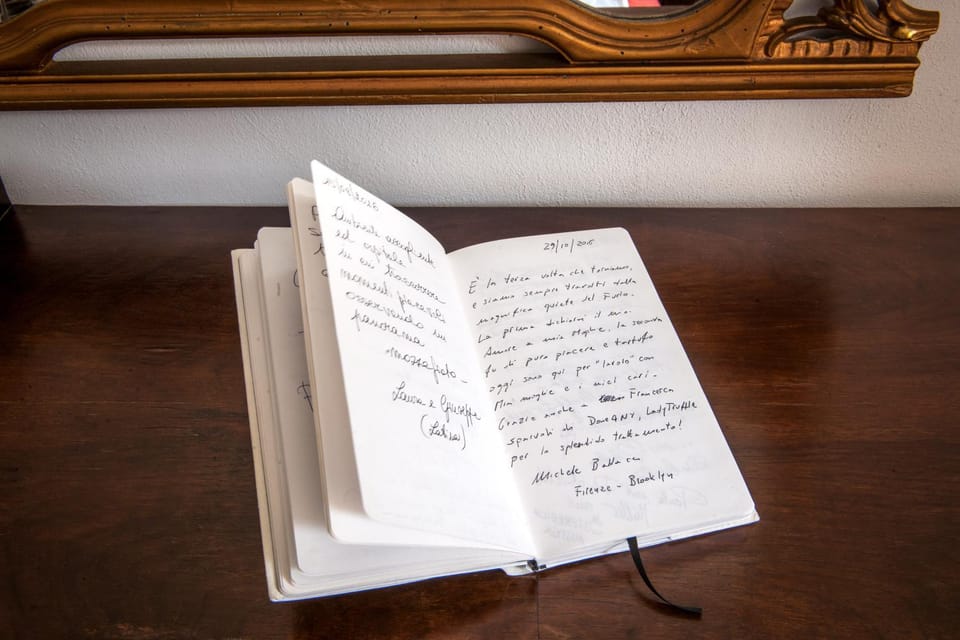 Ambiente accogliente
ed ospitale
in cui trascorrere
momenti piacevoli
osservando un
panorama
mozzafiato -
Laura e Giuseppe
(Latina)
29/10/2015
È la terza volta che torniamo,
e siamo sempre tratti dalla
magnifica quiete del Furio.
La prima dichiarai il mio
Amore a mia moglie, la seconda
fu di puro piacere e tartufo
oggi sono qui per "lavoro" con
mia moglie e i miei cari.
Grazie anche a Francesca
per lo splendido trattamento!
Michele
Firenze - Brooklyn